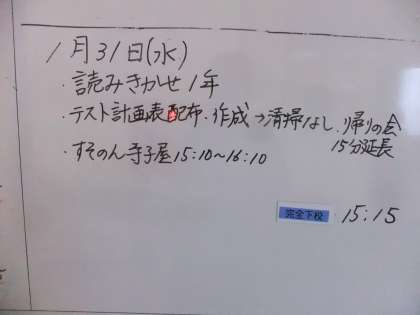 1月31日(水)
・読みきかせ1年
・テスト計画表配布・作成→清掃なし、帰りの会
15分延長
・すそのん寺子屋15:10~16:10
完全下校 15:15